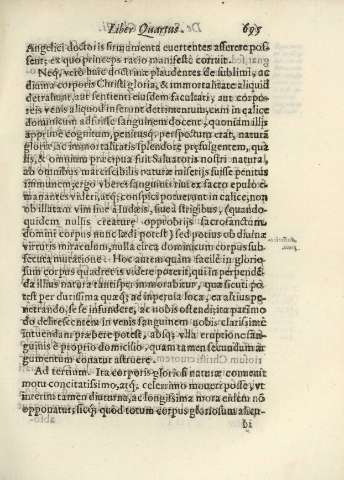 Liber Quartus. 695
Angelici doctoris firmamenta euertentes asserere pos-
sent; ex quo princeps ratio manifestè corruit.
Neq; verò huic doctrinæ plaudentes de sublimi, ac
diuina corporis Christi gloria, & immortalitate aliquid
detrahunt, aut sentiri eiusdem facultati, aut corpo-
reis venis aliquod inferunt detrimentum, cum in calice
dominicum adfuisse sanguinem docent, quoniam illis
apprimè cognitum, penitusq; perspectum erat, naturã
gloriæ, ac immortalitatis splendore præfulgentem, qua
lis, & omnium præcipua fuit Saluatoris nostri natura,
ab omnibus marcescibilis naturæ miserijs fuisse penitus
immunem; ergo vberes sanguinis riui ex sacro epulo e-
manantes videri, atq; conspici potuerunt in calice, non
ob illatam vim siue à Iudæis, siue à strigibus, (quando-
quidem nullis creaturæ opprobrijs sacrosanctum
domini corpus nunc lædi potest) sed potius ob diuinæ
virtutis miraculum, nulla circa dominicum corpus sub-
secuta mutatione. Hoc autem quàm facilè in glorio-
sum corpus quadret is videre poterit, qui in perpendẽ
da illius natura tantisper immorabitur, quæ sicuti po
test per durissima quæq; ac inperuia loca, ea altius pe-
netrando, se se infundere, ac nobis ostendi; ita parimo
do delitescentem in venis sanguinem nobis clarissimè
intuendam præbere potest, absq; vlla eruptione san-
guinis è proprio domicilio, quam tamen secundum ar
gumentum conatur astruere.
Ad tertium. Ita corporis gloriosi naturæ conuenit
motu concitatissimo, atq; celerrimo moueri posse, vt
interim tamen diuturna, ac longissima mora eidem nõ
opponatur; sicq; quòd totum corpus gloriosum aliep-
bi